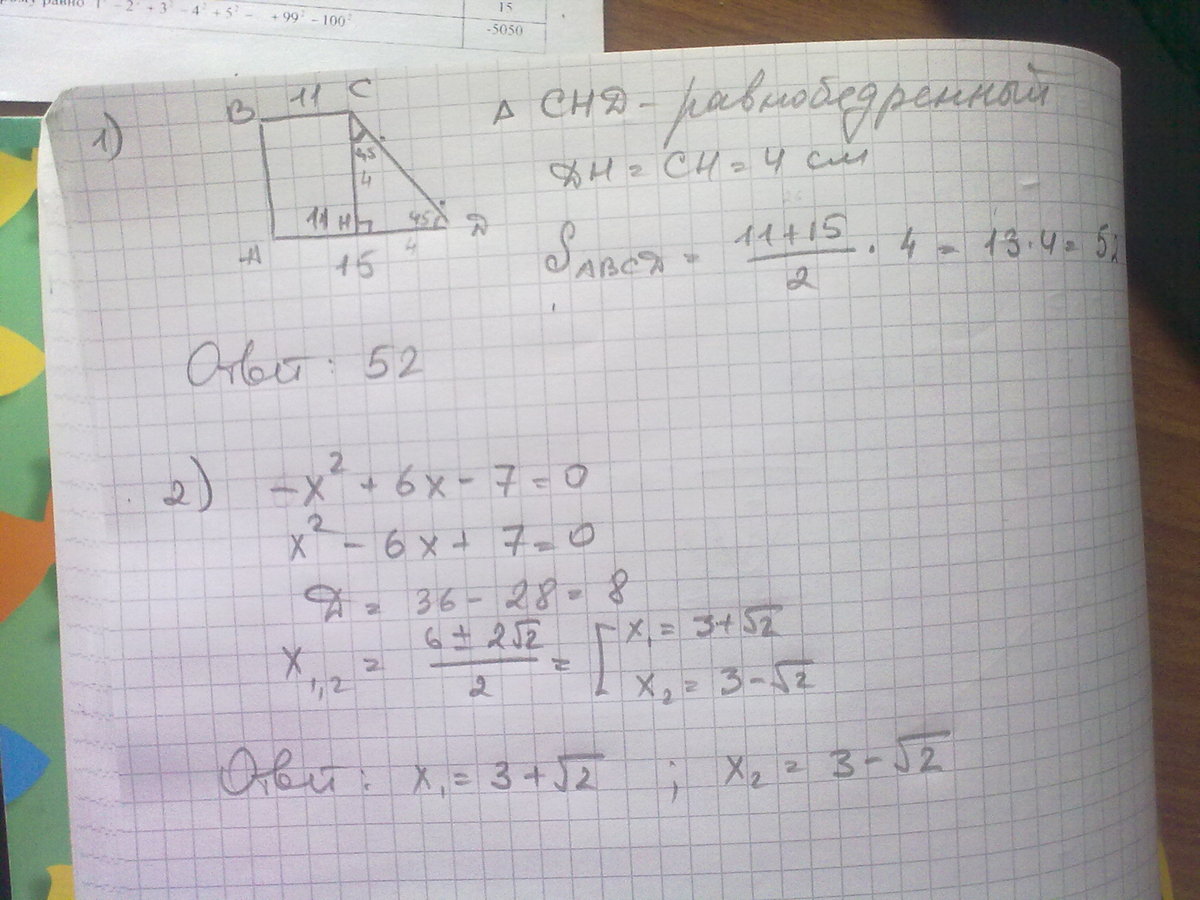 равно 1² - 2² + 3² - 4² + 5² - + 99² - 100²
15
-5050
1)
B 11 C
45
4
11 H 45 D
A 4
15
Δ CHD - равнобедренный
DH = CH = 4 см
S_ABCD = (11+15)/2 · 4 = 13·4 = 52
Ответ: 52
2) -x² + 6x - 7 = 0
x² - 6x + 7 = 0
D = 36 - 28 = 8
x₁,₂ = (6 ± 2√2)/2 = [ x₁ = 3+√2
x₂ = 3-√2
Ответ: x₁ = 3+√2 ; x₂ = 3-√2